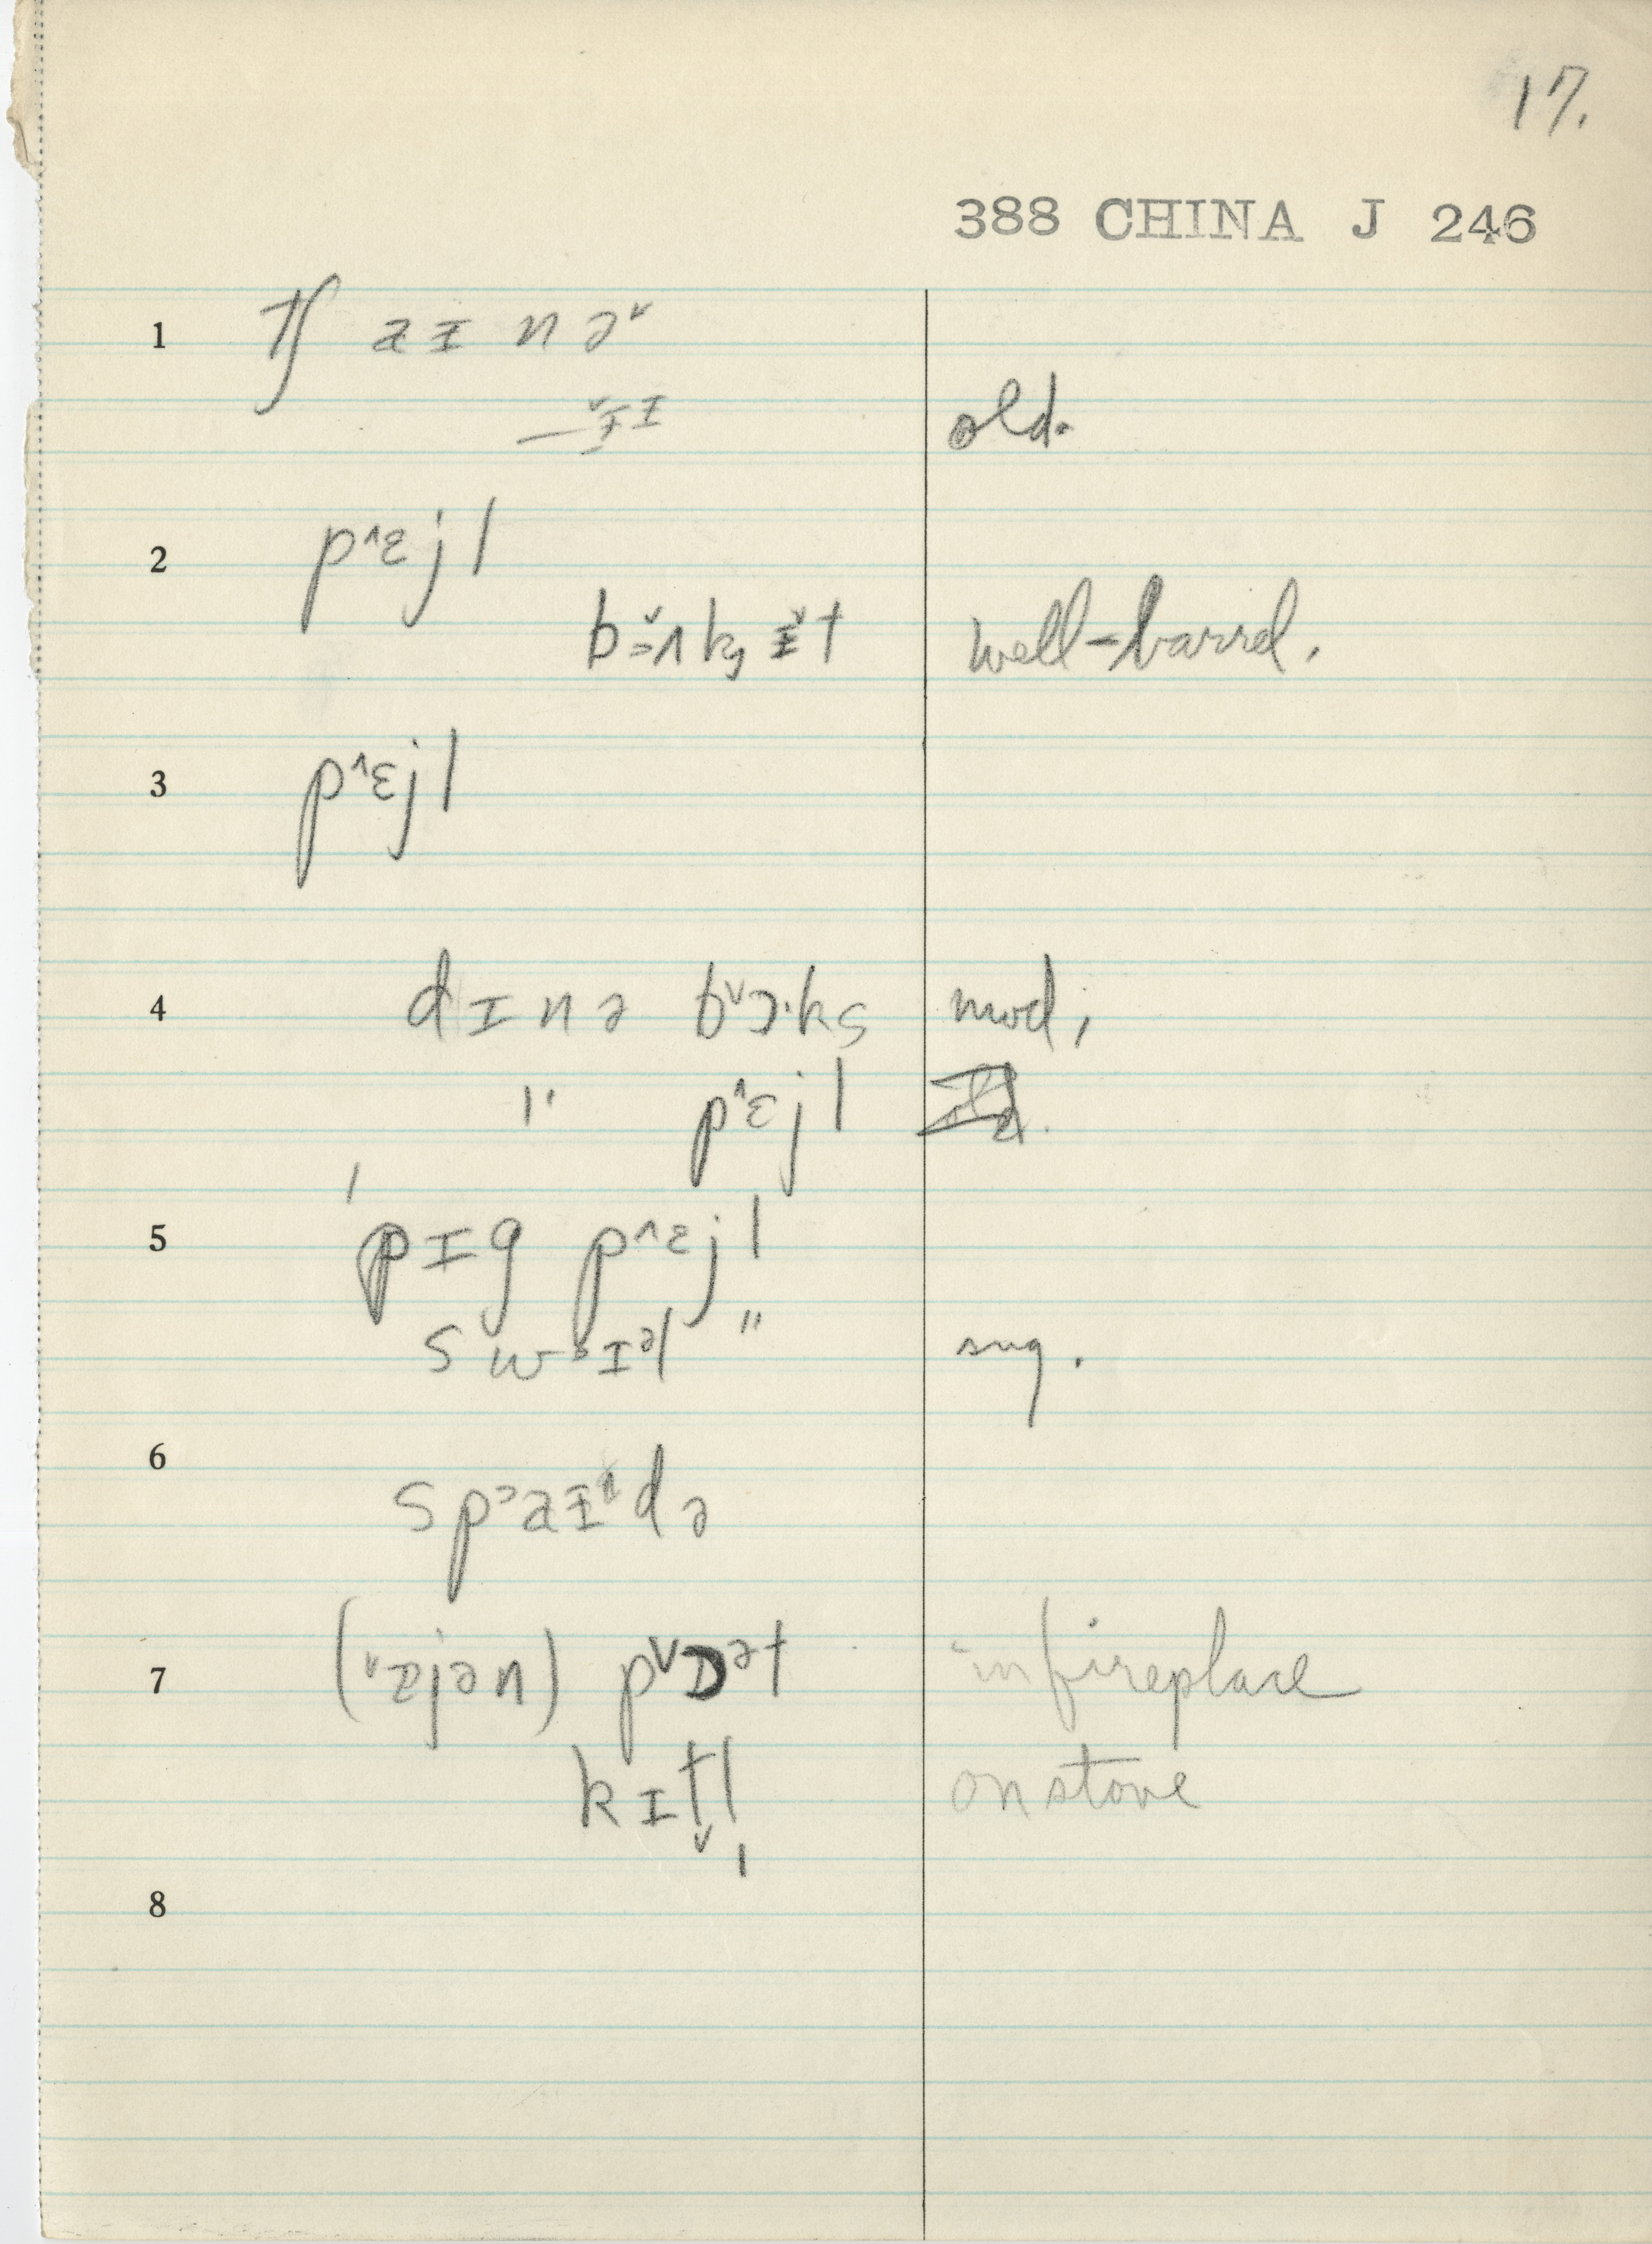 17.
388 CHINA J 246
1 tʃ a ɪ n ə˅
— ɪ̌ɪ old.
2 p˄ɛjl
b ʌkɪ̌t well-barrel.
3 p˄ɛjl
4 dɪnə b˅ɔ·ks mod,
" p˄ɛjl
5 pɪg p˄ɛjl
swᵊɪᵊl " sug.
6 spᵊaɪdə
7 (˅ajən) p˅ɒᵊt in fireplace
kɪtl̩ on stove
8